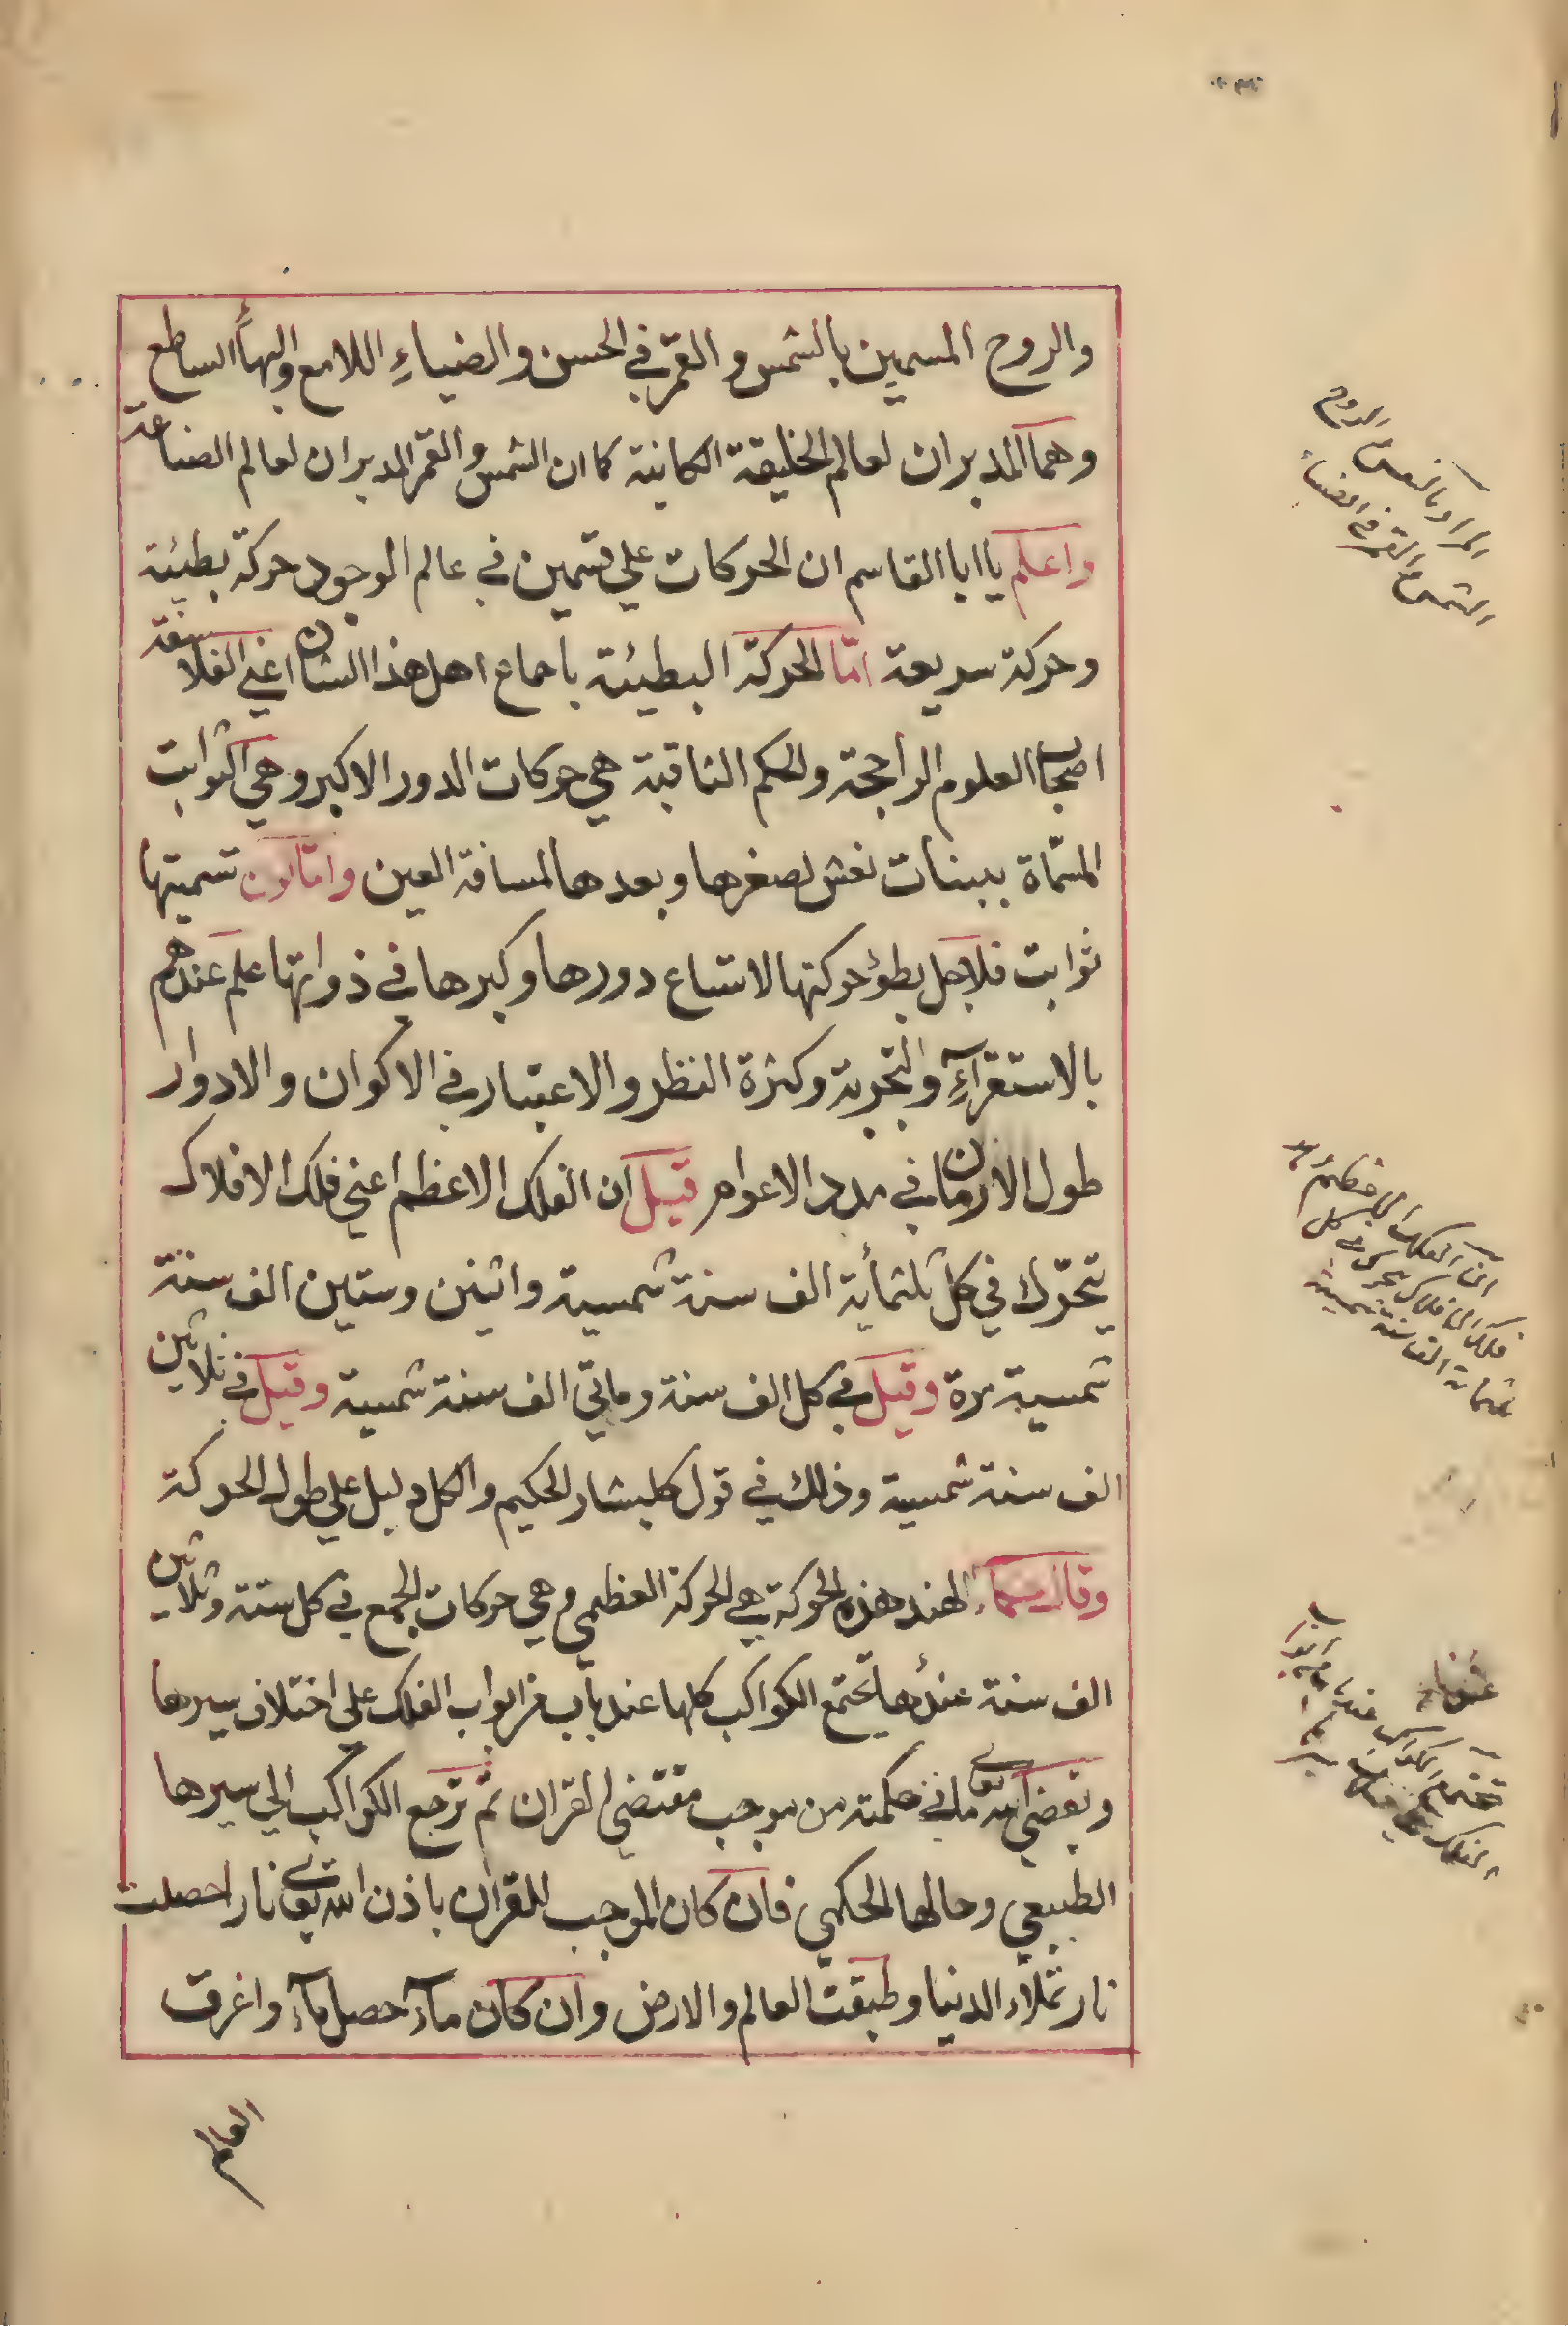 والروح المسمين بالشمس والقمر في الحسن والضياءِ اللامع والبهاً الساطع
وهما المدبران لعالم الخليقة الكانية كما ان الشمس والقمر المدبران لعالم الصناعة
واعلم يا ابا القاسم ان الحركات علي قسمين في عالم الوجود حركة بطيئة
وحركة سريعة امّا الحركة البطيئة باجماع اهل هذا الشان اعني الفلاسفة
اصحاب العلوم الراجحة والحكم الثاقبة هي حركات الدور الاكبر وهي الثوابت
المسمّاة ببنات نعش لصغرها وبعدها لمسافة العين وامّا كون تسميتها
ثوابت فلاجل بطؤ حركتها لاتساع دورها وكبرها في ذواتها علم عندهم
بالاستقرآءِ والتجربة وكثرة النظر والاعتبار في الاكوان والادوار
طول الازمان في مدد الاعوام قيل ان الفلك الاعظم اعني فلك الافلاك
يتحرّك في كل ثلثمأية الف سنة شمسية واثنين وستين الف سنة
شمسية مرة وقيل في كل الف سنة وماتي الف سنة شمسية وقيل في ثلاثين
الف سنة شمسية وذلك في قول كليشار الحكيم والكل دليل علي طول الحركة
وقال حكماء الهند هذه الحركة هي الحركة العظمي وهي حركات الجمع في كل ستة وثلاثين
الف سنة عندها تجتمع الكواكب كلها عند باب من ابواب الفلك علي اختلاف سيرها
ويقضي الله تعالى ما في حكمته من موجب مقتضي القران ثم ترجع الكواكب الي سيرها
الطبيعي وحالها الحكمي فان كان الموجب للقران باذن الله تعالى نارا حصلت
نار تملاء الدنيا وطبقت العالم والارض وان كان مآء حصل مآء واغرق
العالم
المراد بالنفس والروح
الشمس والقمر في الضياء
ان الفلك الاعظم
فلك الافلاك يتحرك في كل
ثلثماية الف سنة شمسية
تجتمع الكواكب عند باب من ابواب
الفلك